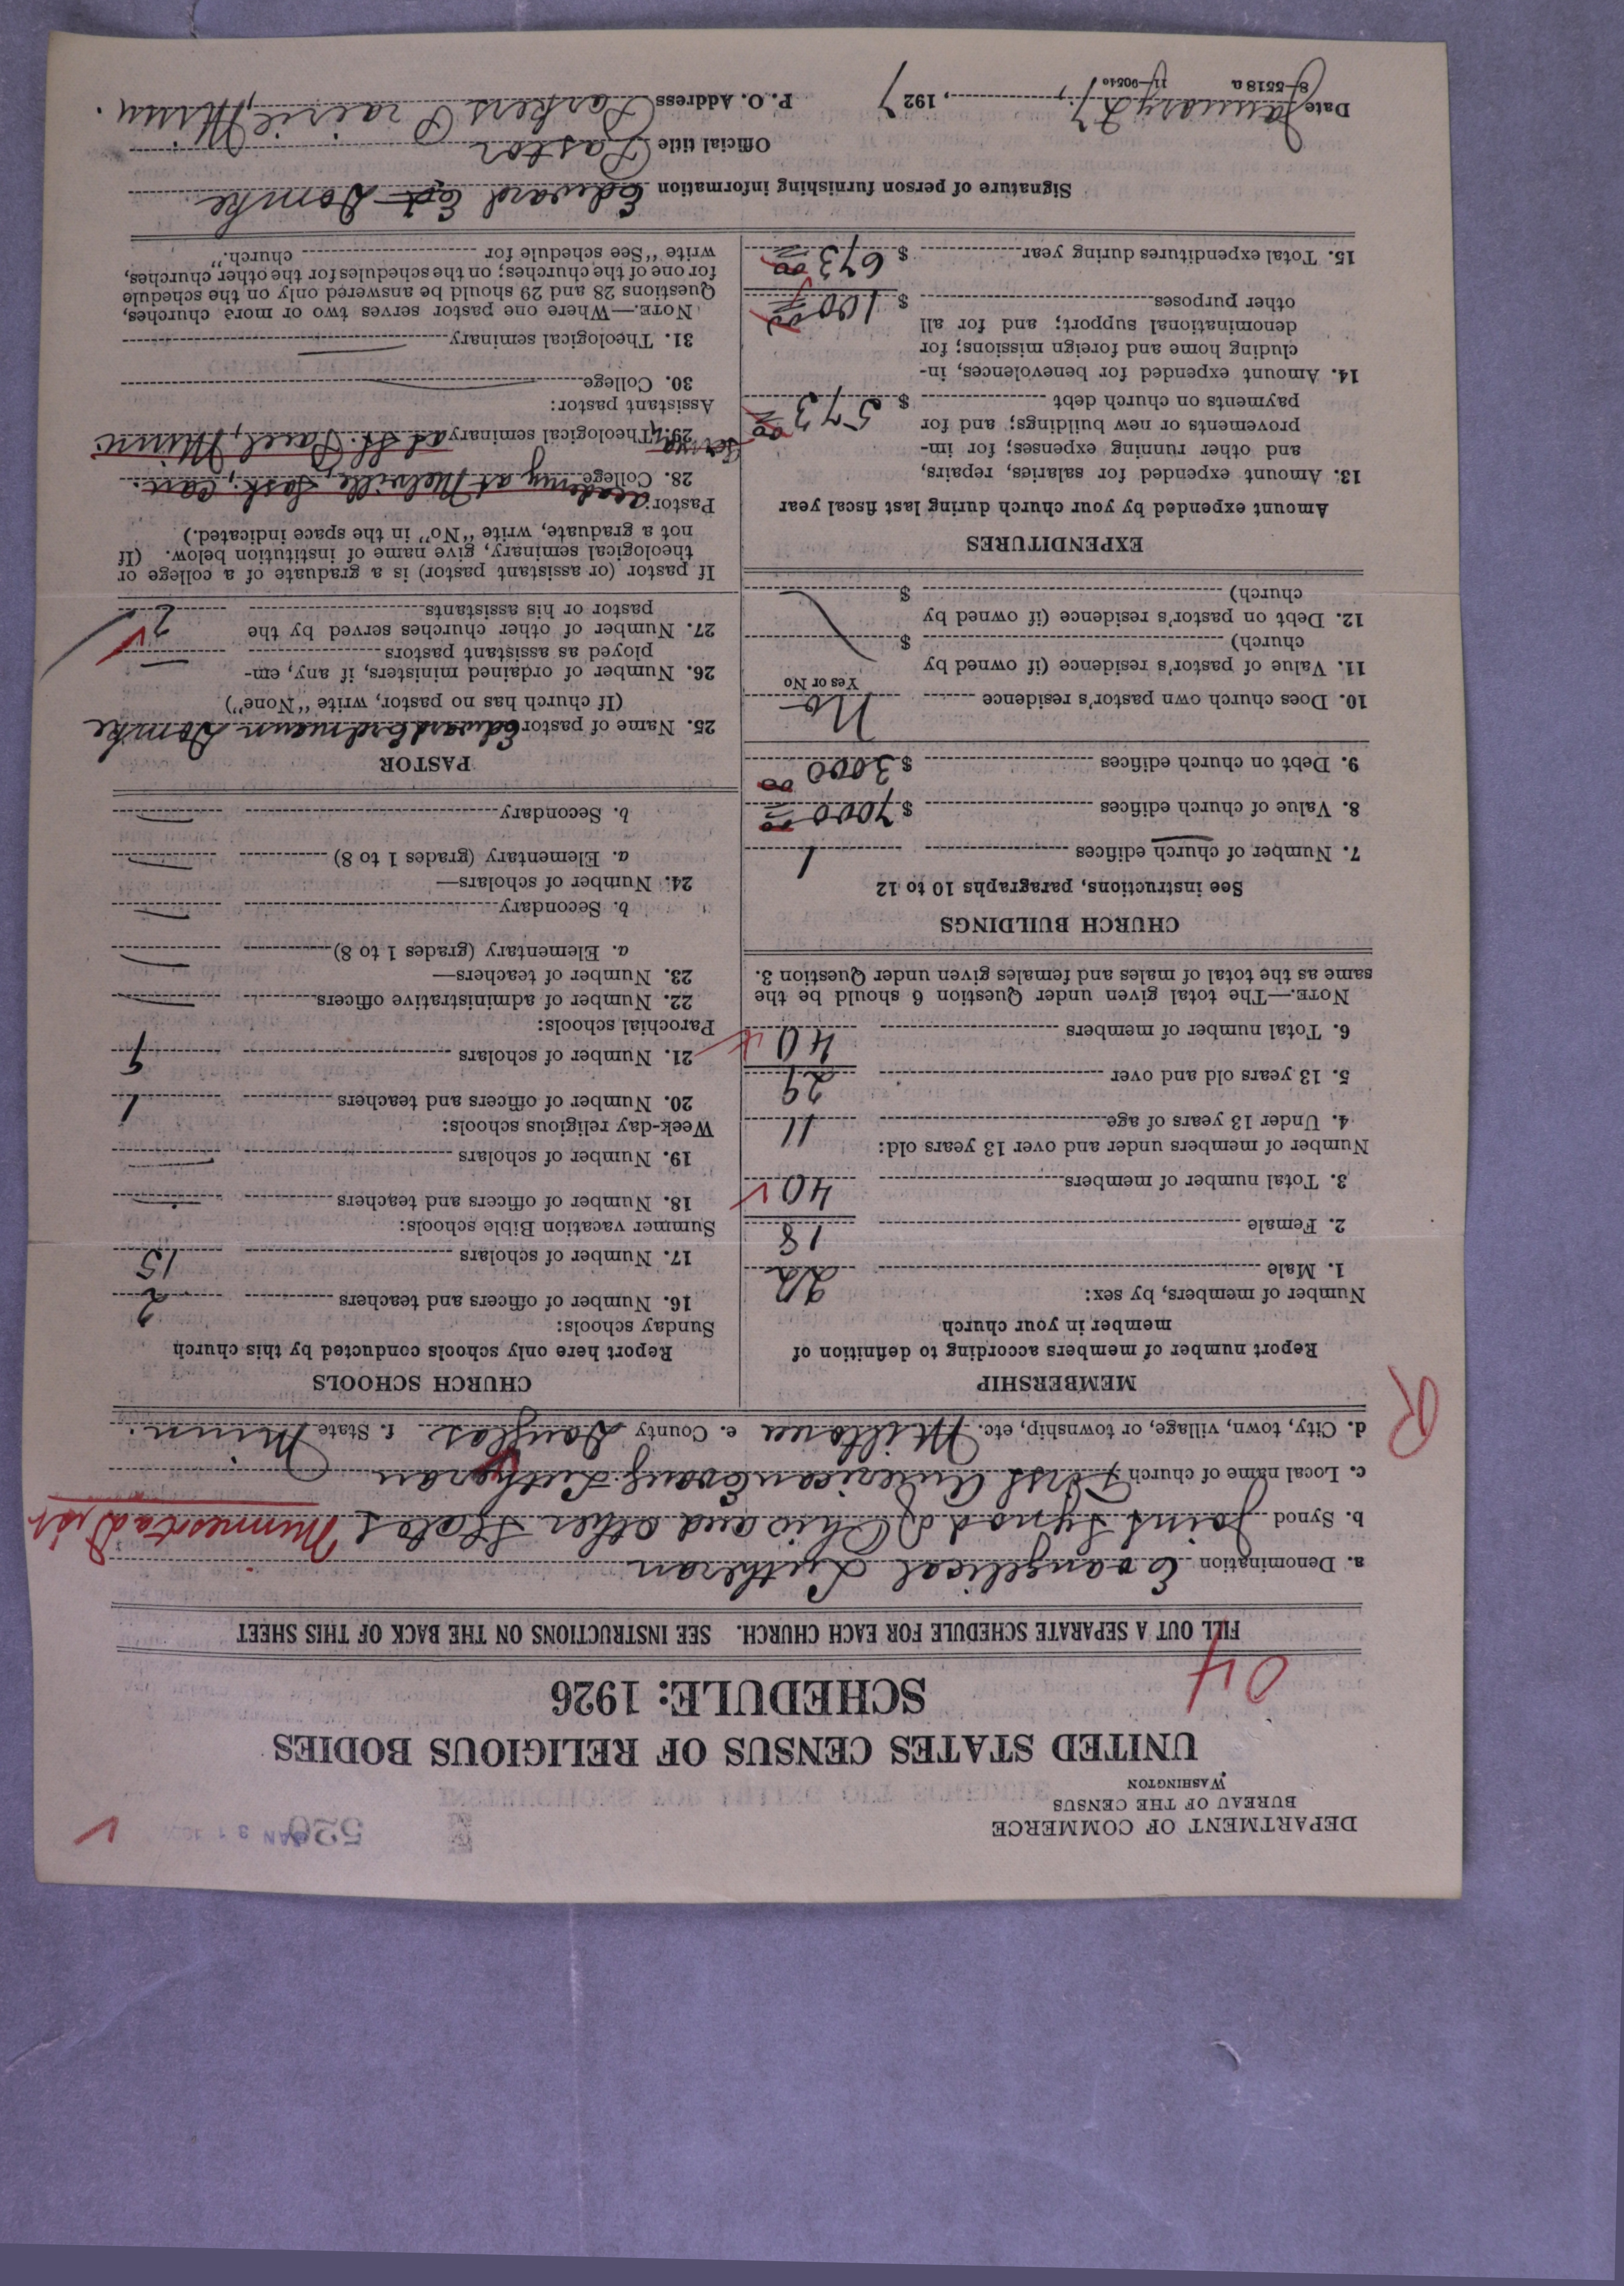 DEPARTMENT OF COMMERCE
BUREAU OF THE CENSUS
WASHINGTON
520
UNITED STATES CENSUS OF RELIGIOUS BODIES
SCHEDULE: 1926
04
FILL OUT A SEPARATE SCHEDULE FOR EACH CHURCH. SEE INSTRUCTIONS ON THE BACK OF THIS SHEET
a. Denomination Evangelical Lutheran
b. Synod Joint Synod of Ohio and other States Minnesota Distr
c. Local name of church First American Evang. Lutheran
d. City, town, village, or township, etc. Miltona e. County Douglas f. State Minn.
R
MEMBERSHIP
Report number of members according to definition of
member in your church
Number of members, by sex:
1. Male 22
2. Female 18
3. Total number of members 40
Number of members under and over 13 years old:
4. Under 13 years of age 11
5. 13 years old and over 29
6. Total number of members 40
NOTE.—The total given under Question 6 should be the
same as the total of males and females given under Question 3.
CHURCH BUILDINGS
See instructions, paragraphs 10 to 12
7. Number of church edifices 1
8. Value of church edifices $ 7000 00
9. Debt on church edifices $ 3000 00
10. Does church own pastor's residence No
Yes or No
11. Value of pastor's residence (if owned by
church) $
12. Debt on pastor's residence (if owned by
church) $
EXPENDITURES
Amount expended by your church during last fiscal year
13. Amount expended for salaries, repairs,
and other running expenses; for im-
provements or new buildings; and for
payments on church debt $ 573 00
14. Amount expended for benevolences, in-
cluding home and foreign missions; for
denominational support; and for all
other purposes $ 100 00
15. Total expenditures during year $ 673 00
CHURCH SCHOOLS
Report here only schools conducted by this church
Sunday schools:
16. Number of officers and teachers 2
17. Number of scholars 15
Summer vacation Bible schools:
18. Number of officers and teachers
19. Number of scholars
Week-day religious schools:
20. Number of officers and teachers 1
21. Number of scholars 9
Parochial schools:
22. Number of administrative officers
23. Number of teachers—
a. Elementary (grades 1 to 8)
b. Secondary
24. Number of scholars—
a. Elementary (grades 1 to 8)
b. Secondary
PASTOR
25. Name of pastor Edward Erdmann Domke
(If church has no pastor, write "None")
26. Number of ordained ministers, if any, em-
ployed as assistant pastors
27. Number of other churches served by the
pastor or his assistants 2
If pastor (or assistant pastor) is a graduate of a college or
theological seminary, give name of institution below. (If
not a graduate, write "No" in the space indicated.)
Pastor:
28. College academy at Melville, Sask. Can.
29. Theological seminary at St. Paul, Minn
Assistant pastor:
30. College
31. Theological seminary
NOTE.—Where one pastor serves two or more churches,
Questions 28 and 29 should be answered only on the schedule
for one of the churches; on the schedules for the other churches,
write "See schedule for church."
Signature of person furnishing information Edward Domke
Official title Pastor
Date January 27, 1927 P. O. Address Parkers Prairie, Minn.
8—5518a 11—9054a